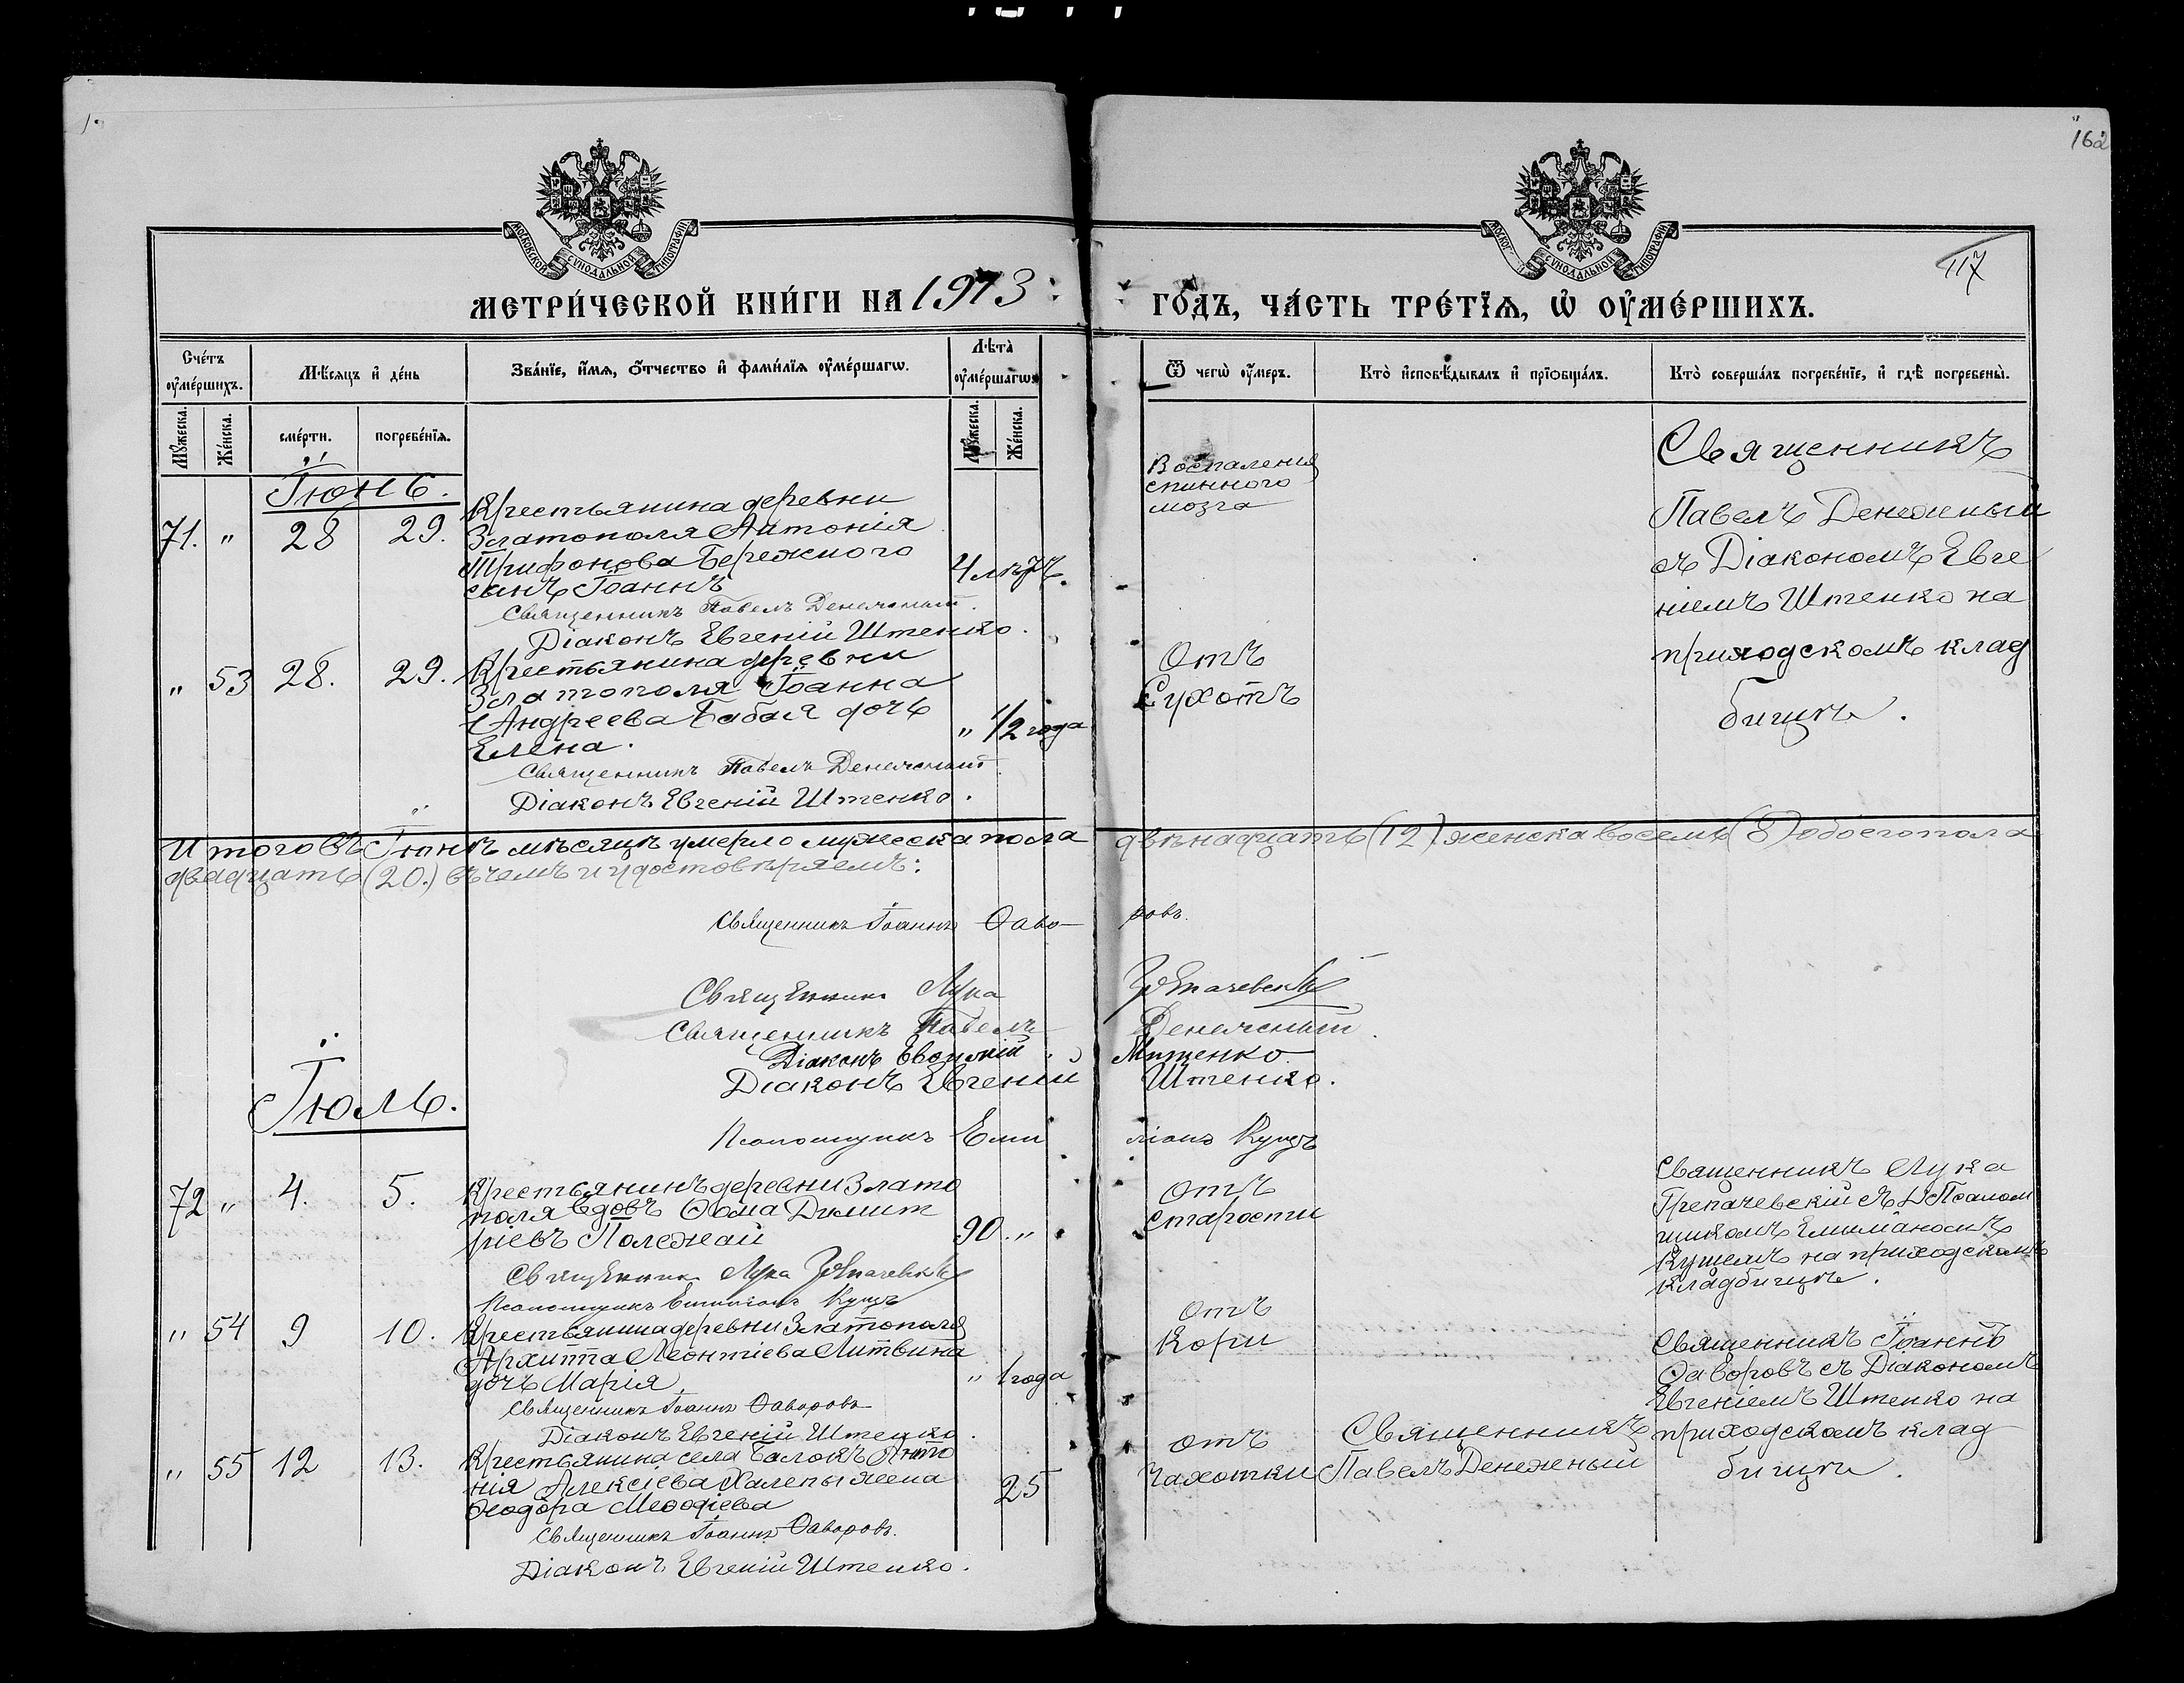 162
117
МОСКОВСКОЙ СѴНОДАЛЬНОЙ ТИПОГРАФІИ
МОСКОВСКОЙ СѴНОДАЛЬНОЙ ТИПОГРАФІИ
МЕТРИ́ЧЕСКОЙ КНИ́ГИ НА 1913 ГО́ДЪ, ЧА́СТЬ ТРЕ́ТЇѦ, Ѡ҆ ОУ҆МЕ́РШИХЪ.
Сче́тъ оу҆ме́ршихъ.
Мѣ́сяцъ и҆ де́нь
Зва́нїе, и҆́мѧ, ѻ҆́тчество и҆ фами́лїѧ оу҆ме́ршагѡ.
Лѣ́та оу҆ме́ршагѡ.
Ѿ чегѡ̀ оу҆́меръ.
Кто̀ и҆сповѣ́дывалъ и҆ прїѻбща́лъ.
Кто̀ соверша́лъ погребе́нїе, и҆ гдѣ̀ погребены̀.
Мꙋ́жеска.
Же́нска.
сме́рти.
погребе́нїѧ.
Мꙋ́жеска.
Же́нска.
Іюнь.
71. " 28 29.
Крестьянина деревни
Златополя Антонія
Трифонова Бережного
сынъ Іоаннъ
Священникъ Павелъ Денежный.
Діаконъ Евгеній Штенко.
Воспаленія
спинного
мозга
Священникъ
Павелъ Денежный
съ Діакономъ Евге
ніемъ Штенко на
приходскомъ клад
бищѣ.
" 53 28. 29.
Крестьянина деревни
Златополя Іоанна
Андреева Бабая дочь
Елена.
" 1/2 года
Священникъ Павелъ Денежный
Діаконъ Евгеній Штенко.
Отъ
Сухотъ
Итого въ Іюнѣ мѣсяцѣ умерло мужеска пола двѣнадцать (12) женска восемь (8) обоего пола
двадцать (20.) въ чемъ и удостовѣряемъ:
Священникъ Іоаннъ Ѳаворовъ.
Священникъ Лука
Священникъ Павелъ Денежный.
Діаконъ
Діаконъ Евгеній Штенко.
Псаломщикъ Емиліанъ Куцъ
Іюль.
72 " 4. 5.
Крестьянинъ деревни Злато
поля вдовъ Ѳома Димит
ріевъ Полежай
90. "
Священникъ Лука
Псаломщикъ Емиліанъ Куцъ
Отъ
Старости
Священникъ Лука
Трепачевскій съ Псалом
щикомъ Емиліаномъ
Куцемъ на приходскомъ
кладбищѣ.
" 54 9 10.
Крестьянина деревни Златополя
Архиппа Леонтіева Литвина
дочь Марія.
" 1 года
Священникъ Іоаннъ Ѳаворовъ
Діаконъ Евгеній Штенко.
Отъ
Кори
Священникъ Іоаннъ
Ѳаворовъ съ Діакономъ
Евгеніемъ Штенко на
приходскомъ клад
бищѣ.
" 55 12 13.
Крестьянина села Балокъ Анто
нія Алексіева Халепы жена
Ѳеодора Меѳодіева
25
Священникъ Іоаннъ Ѳаворовъ.
Діаконъ Евгеній Штенко.
отъ
Чахотки
Священникъ
Павелъ Денежный